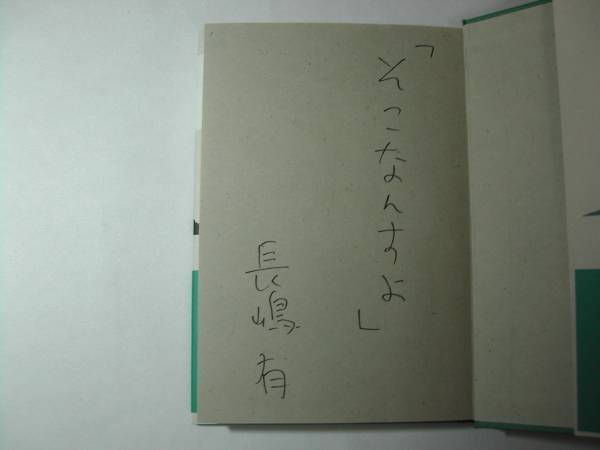 「そこなんすよ」
長嶋有